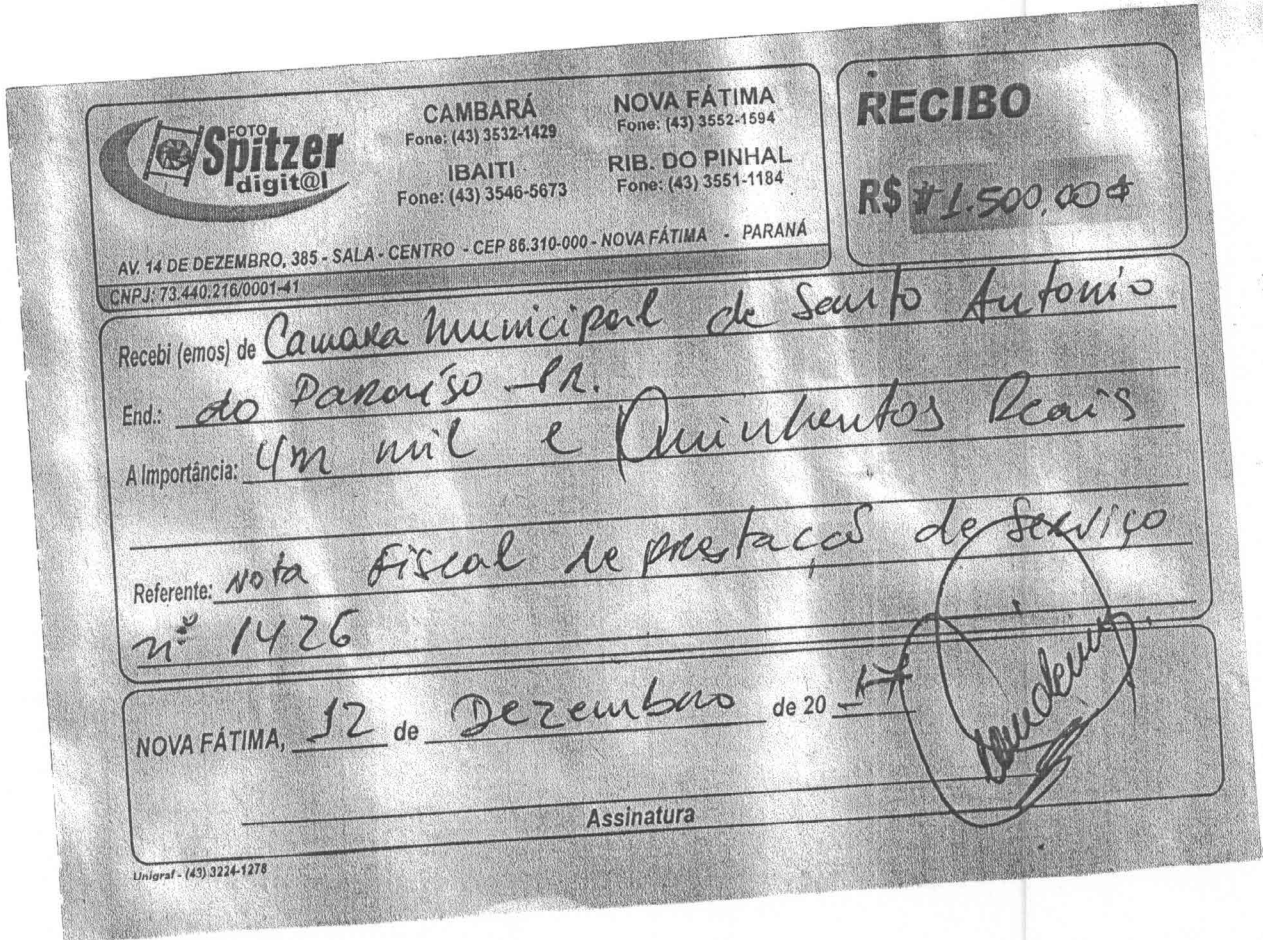 FOTO
Spitzer
digit@l
CAMBARÁ
Fone: (43) 3532-1429
IBAITI
Fone: (43) 3546-5673
NOVA FÁTIMA
Fone: (43) 3552-1594
RIB. DO PINHAL
Fone: (43) 3551-1184
AV. 14 DE DEZEMBRO, 385 - SALA - CENTRO - CEP 86.310-000 - NOVA FÁTIMA - PARANÁ
CNPJ: 73.440.216/0001-41
RECIBO
R$ # 1.500,00 #
Recebi (emos) de Camara Municipal de Santo Antonio
End.: do Paraíso - PR.
A Importância: Um mil e Quinhentos Reais
Referente: Nota Fiscal de prestacaõ de Serviço
nº 1426
NOVA FÁTIMA, 12 de Dezembro de 20 17
Assinatura
Unigraf - (43) 3224-1278